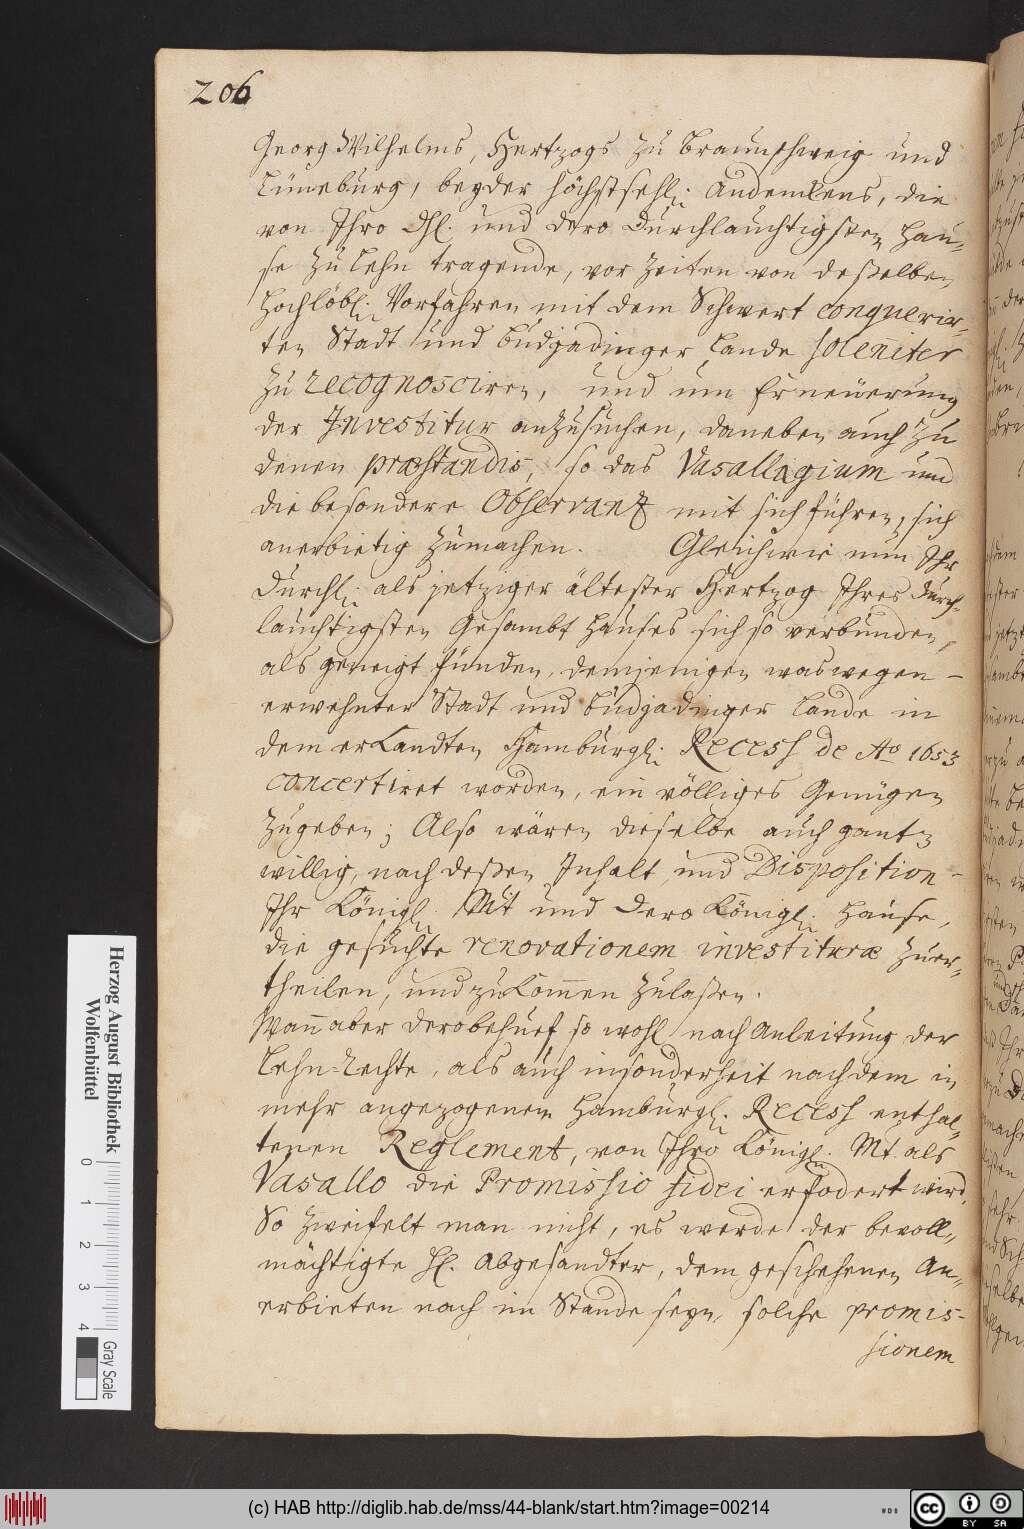 206
Georg Wilhelms, Hertzogs zu Braunschweig und
Lüneburg, beyder höchstseel. Andenckens, die
von Ihro Dhl. und dero Durchlauchtigsten Hau-
se zu Lehn tragende, vor Zeiten von deßelben
Hochlöbl. Vorfahren mit dem Schwert conquerir-
ten Stadt und Budjadinger Lande soleniter
zu recognosciren, und um Erneuerung
der Investitur anzusuchen, daneben auch zu
denen præstandis, so das Vasallagium und
die besondere Observantz mit sich führen, sich
anerbietig zumachen. Gleichwie nun Ihr
Durchl. als jetziger ältester Hertzog Ihres Durch-
lauchtigsten Gesambt Hauses sich so verbunden,
als geneigt funden, demjenigen was wegen
erwehnter Stadt und Budjadinger Lande in
dem erkandten Hamburgl. Recess de Ao 1653
concertiret worden, ein völliges Genügen
zugeben; Also wären dieselbe auch gantz
willig, nach deßen Inhalt und Disposition
Ihr Königl. Mt und Dero Königl. Hause,
die gesuchte renovationem investituræ zuer-
theilen, und zukom̅en zulaßen.
Wan̅ aber derobehuef so wohl nach Anleitung der
Lehn-Rechte, als auch insonderheit nach dem in
mehr angezogenem Hamburgl. Recess enthal-
tenen Reglement, von Ihro Königl. Mt. als
Vasallo die Promissio fidei erfodert wird,
So zweifelt man nicht, es werde der bevoll-
mächtigte H. Abgesandter, dem geschehenen An-
erbieten nach im Stande seyn, solche promis-
sionem
Herzog August Bibliothek
Wolfenbüttel
0 1 2 3 4
Gray Scale
(c) HAB http://diglib.hab.de/mss/44-blank/start.htm?image=00214
WDB
cc BY SA